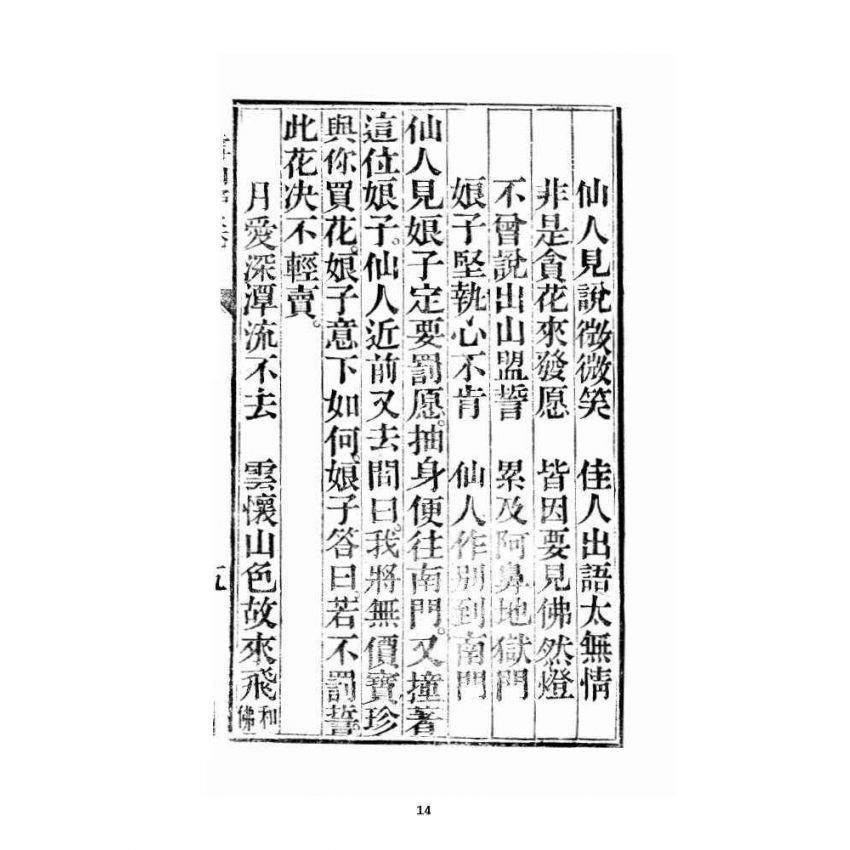 仙人見說微微笑　佳人出語太無情
非是貪花來發愿　皆因要見佛然燈
不曾說出山盟誓　累及阿鼻地獄門
娘子堅執心不肯　仙人作別到南門
仙人見娘子定要罰愿。抽身便往南門。又撞著
這位娘子。仙人近前又去問曰。我將無價寶珍
與你買花。娘子意下如何。娘子答曰若不罰誓。
此花决不輕賣。
月愛深潭流不去　雲懷山色故來飛　和佛
五
14